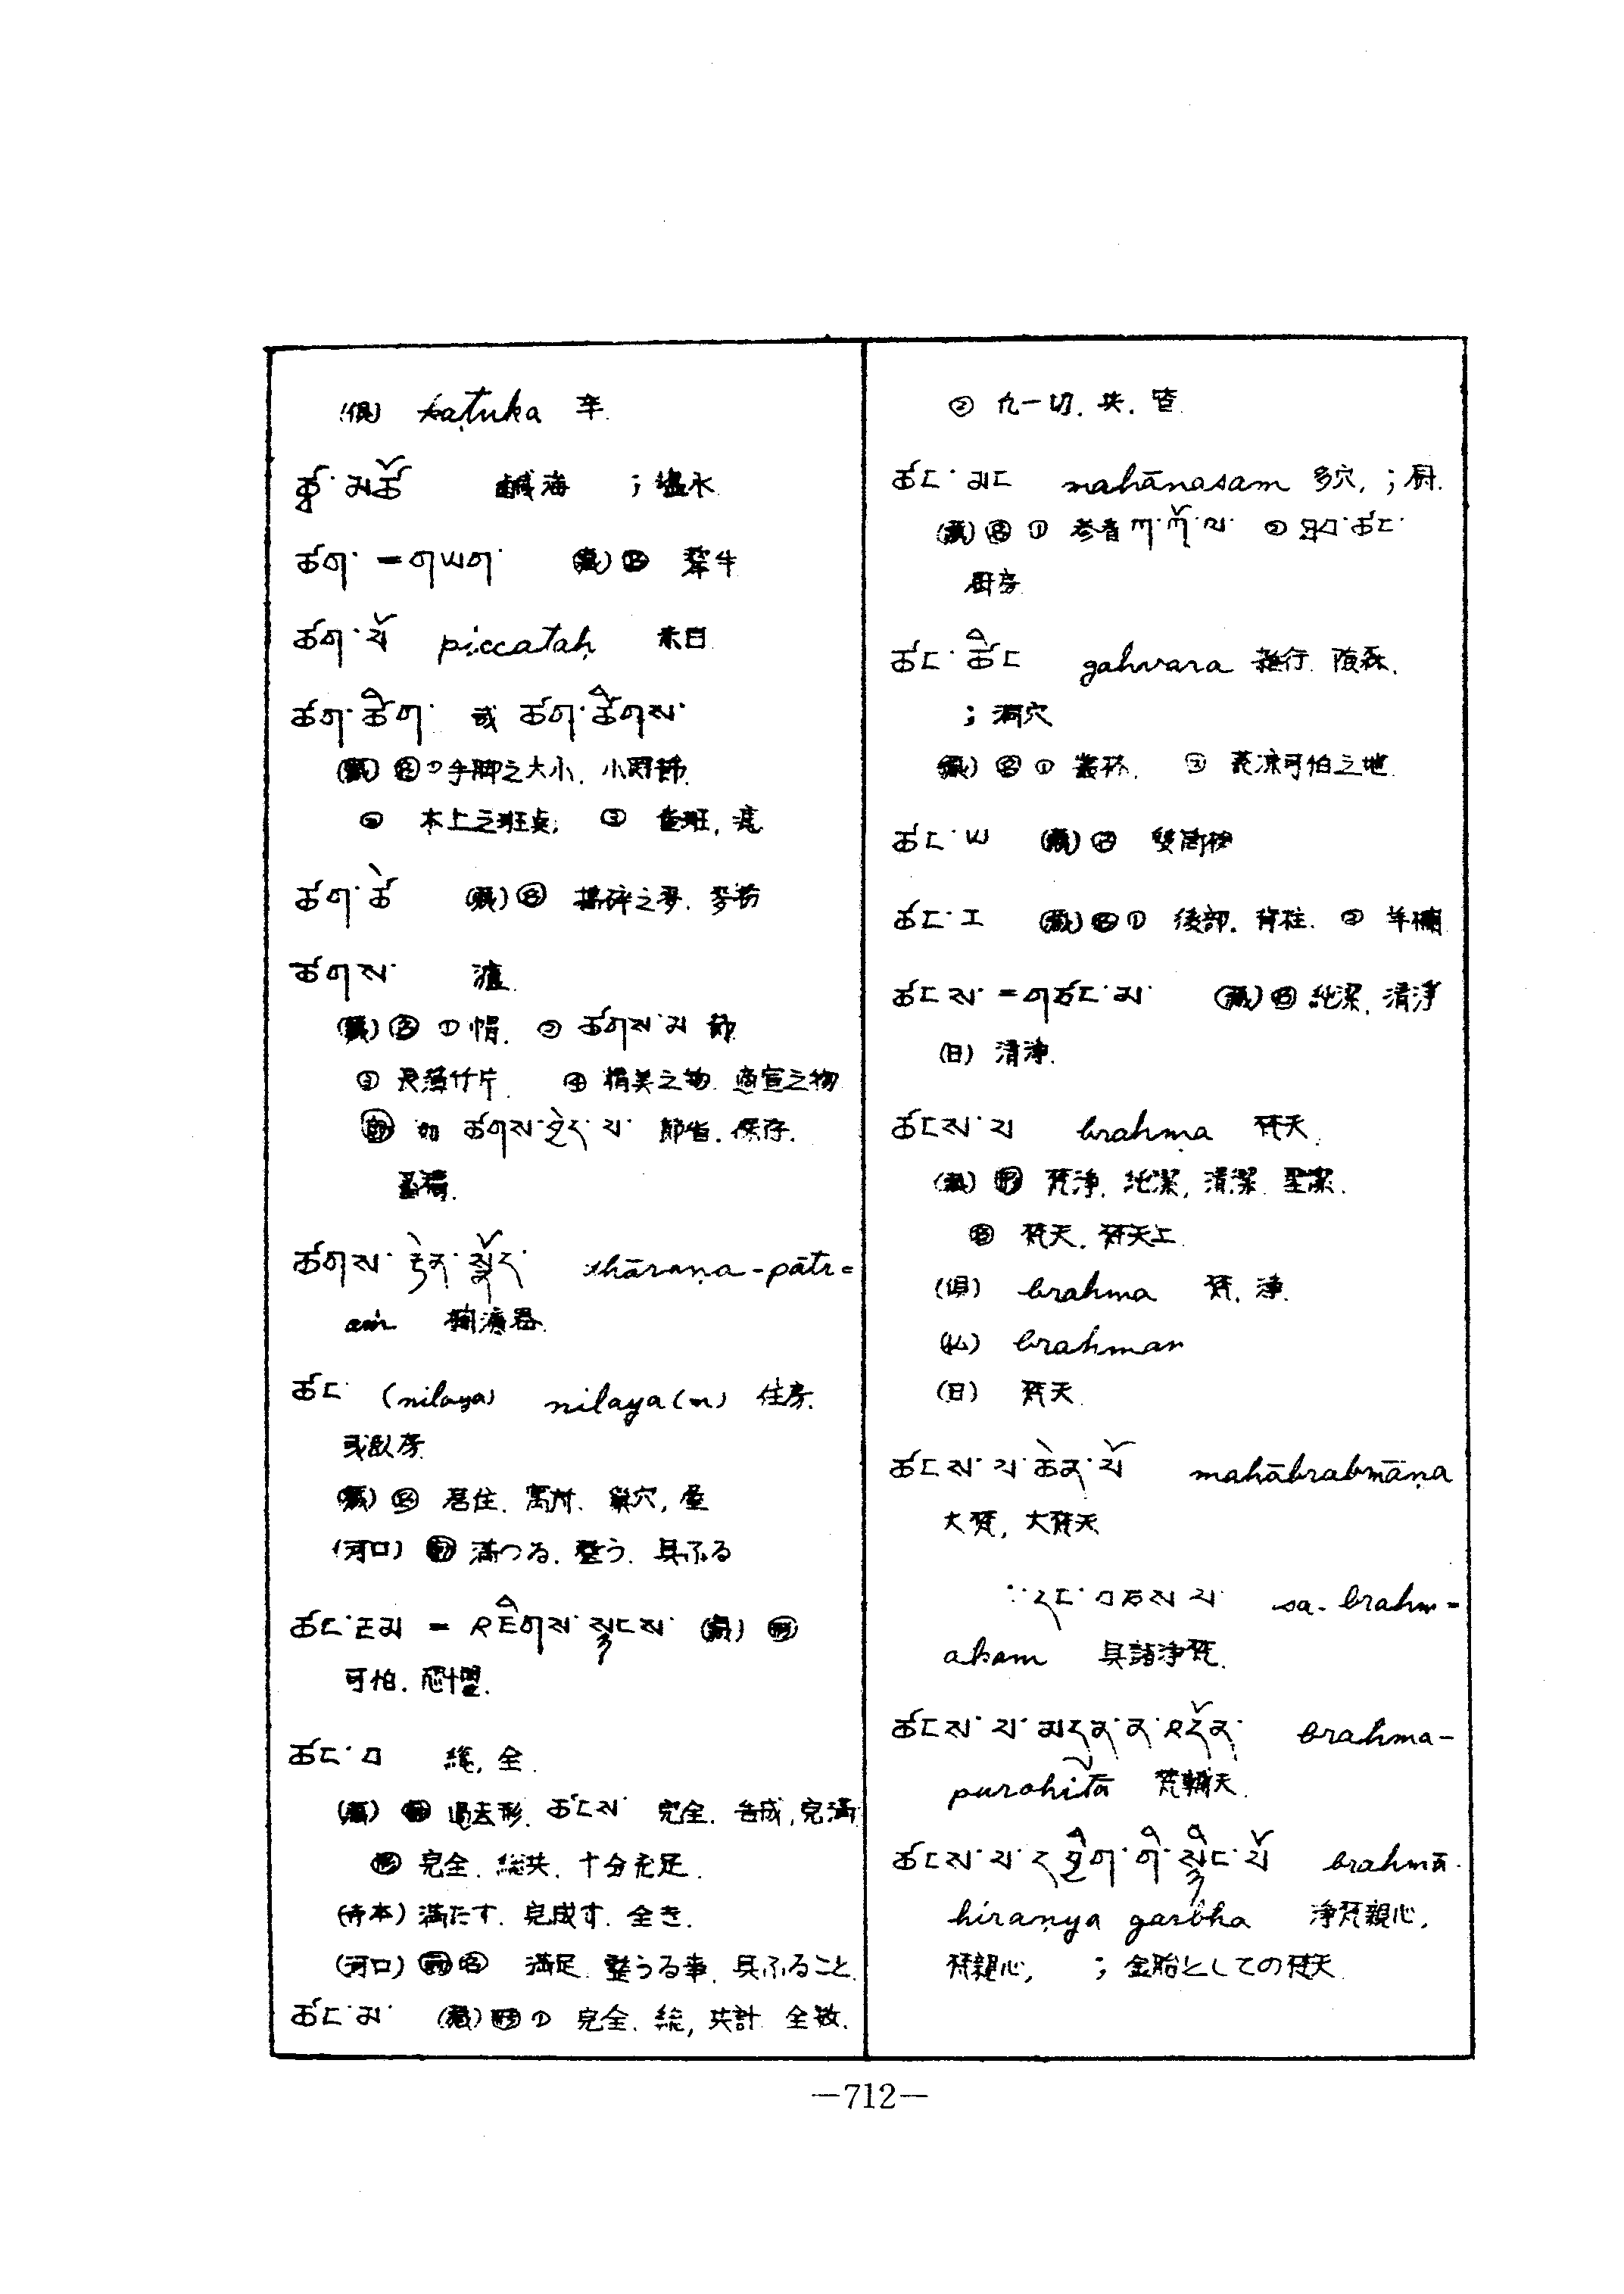 (倶) kaṭuka 辛.
ཚྭ་མཚོ 鹹海 ; 塩水
ཚག་ = གཡག (蔵) 名 犛牛
ཚག་པོ piccataḥ 末曰
ཚག་ཚིག 或 ཚག་ཚིགས་
(蔵) 名 ① 手脚之大小. 小関節.
② 木上之斑点; ③ 雀斑, 痣
ཚག་ཚེ (蔵) 名 搗砕之麦. 麦粉
ཚགས་ 濾.
(蔵) 名 ① 帽. ② ཚགས་མ 篩
③ 長薄竹片. ④ 精美之物. 適宜之物
動 如 ཚགས་བྱེད་པ་ 節省. 保存.
蓄積.
ཚགས་རྟེན་སྣོད་ -pātr=
aṁ 濾器.
ཚང་ (nilaya) nilaya(m) 住房.
或臥房.
(蔵) 名 居住. 窩村. 巣穴, 屋
(河口) 動 満つる. 整う. 具ふる
ཚང་ཇམ = འཇིགས་སྣངས་ (蔵) 形
可怕. 恐懼.
ཚང་བ 総, 全.
(蔵) 動 過去形. ཚངས་ 完全. 告成, 完満
形 完全. 総共. 十分充足.
(寺本) 満たす. 完成す. 全き.
(河口) 形 名 満足. 整うる事. 具ふること.
ཚང་མ་ (蔵) 形 ① 完全. 総, 共計. 全数.
② 凡一切. 共. 皆.
ཚང་མང mahānasam 多穴, ; 厨.
(蔵) 名 ① 参看 ཀ་ཀོ་ལ་ ② ཐབ་ཚང་
厨房.
ཚང་ཚིང gahvara 雑行. 陰森.
; 洞穴
(蔵) 名 ① 叢林. ② 荒凉可怕之地.
ཚང་ཡ (蔵) 名
ཚང་ར (蔵) 名 ① 後部. 脊柱. ② 羊欄
ཚངས་ = གཙང་མ་ (蔵) 名 純潔, 清浄
(日) 清浄.
ཚངས་པ brahma 梵天.
(蔵) 形 梵浄. 純潔, 清潔. 聖潔.
名 梵天. 梵天上.
(倶) brahma 梵, 浄.
(仏) brahman
(日) 梵天.
ཚངས་པ་ཆེན་པོ mahābrabmāṇa
大梵, 大梵天
་་དང་བཅས་པ་ sa-brahm=
akam 具諸浄梵.
ཚངས་པ་མདུན་ན་འདོན་ brahma-
purohitā 梵輔天.
ཚངས་པ་ད་བྱིག་གི་སྙིང་པོ brahmā-
hiraṇya garbha 浄梵親心,
梵親心, ; 金胎としての梵天.
—712—